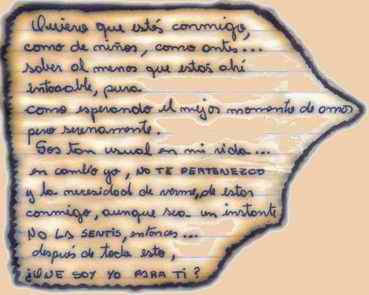 Quiero que estés conmigo,
como de niños, como antes...
saber al menos que estás ahí
intocable, pura
como esperando el mejor momento de amor
pero serenamente.
Sos tan usual en mi vida...
en cambio yo, NO TE PERTENEZCO
y la necesidad de verme, de estar
conmigo, aunque sea un instante
NO LA SENTÍS, entonces...
después de todo esto,
¿QUE SOY YO PARA TÍ?